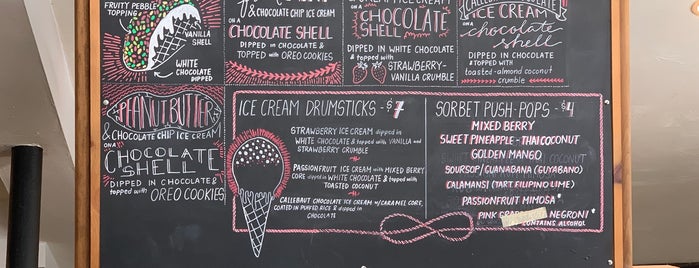 FRUITY PEBBLE
TOPPING
VANILLA
SHELL
WHITE
CHOCOLATE
DIPPED
& CHOCOLATE CHIP ICE CREAM
ON A
CHOCOLATE SHELL
DIPPED IN CHOCOLATE &
TOPPED WITH OREO COOKIES
ICE CREAM
ON A
CHOCOLATE
SHELL
DIPPED IN WHITE CHOCOLATE
& TOPPED WITH
STRAWBERRY-
VANILLA CRUMBLE
CALLEBAUT CHOCOLATE
ICE CREAM
ON A
chocolate
shell
DIPPED IN CHOCOLATE
& TOPPED with
toasted-almond coconut
crumble
PEANUT BUTTER
& CHOCOLATE CHIP ICE CREAM
ON A
CHOCOLATE
SHELL
DIPPED IN CHOCOLATE &
topped with OREO COOKIES
ICE CREAM DRUMSTICKS - $7
STRAWBERRY ICE CREAM dipped in
WHITE CHOCOLATE & topped with VANILLA and
STRAWBERRY CRUMBLE
PASSIONFRUIT ICE CREAM with MIXED BERRY
CORE dipped in WHITE CHOCOLATE & topped with
TOASTED COCONUT
CALLEBAUT CHOCOLATE ICE CREAM w/CARAMEL CORE,
COATED IN PUFFED RICE & dipped in
CHOCOLATE
SORBET PUSH-POPS - $4
MIXED BERRY
SWEET PINEAPPLE - THAI COCONUT
GOLDEN MANGO
SOURSOP / GUANABANA (GUYABANO)
CALAMANSI (TART FILIPINO LIME)
PASSIONFRUIT MIMOSA*
PINK GRAPEFRUIT NEGRONI*
*CONTAINS ALCOHOL